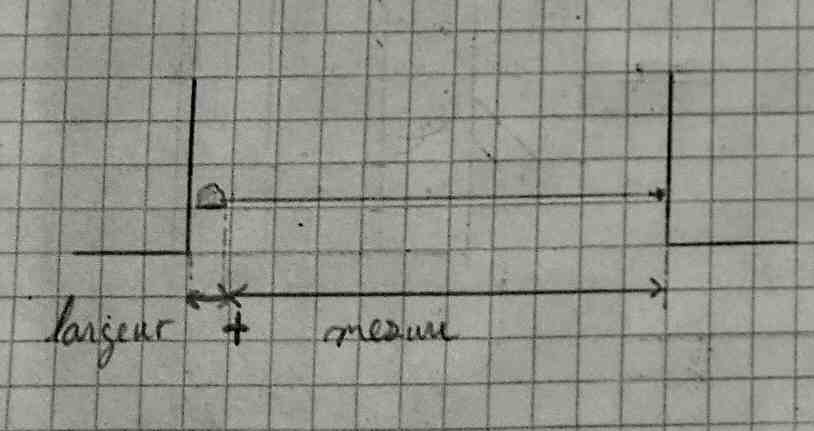 largeur + mesure